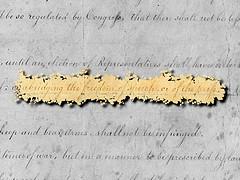 be so regulated by Congress, that there shall not be
until an election of Representatives shall have
abridging the freedom of speech, or of the press
keep and bear arms shall not be infringed.
time of war, but in a manner to be prescribed by law